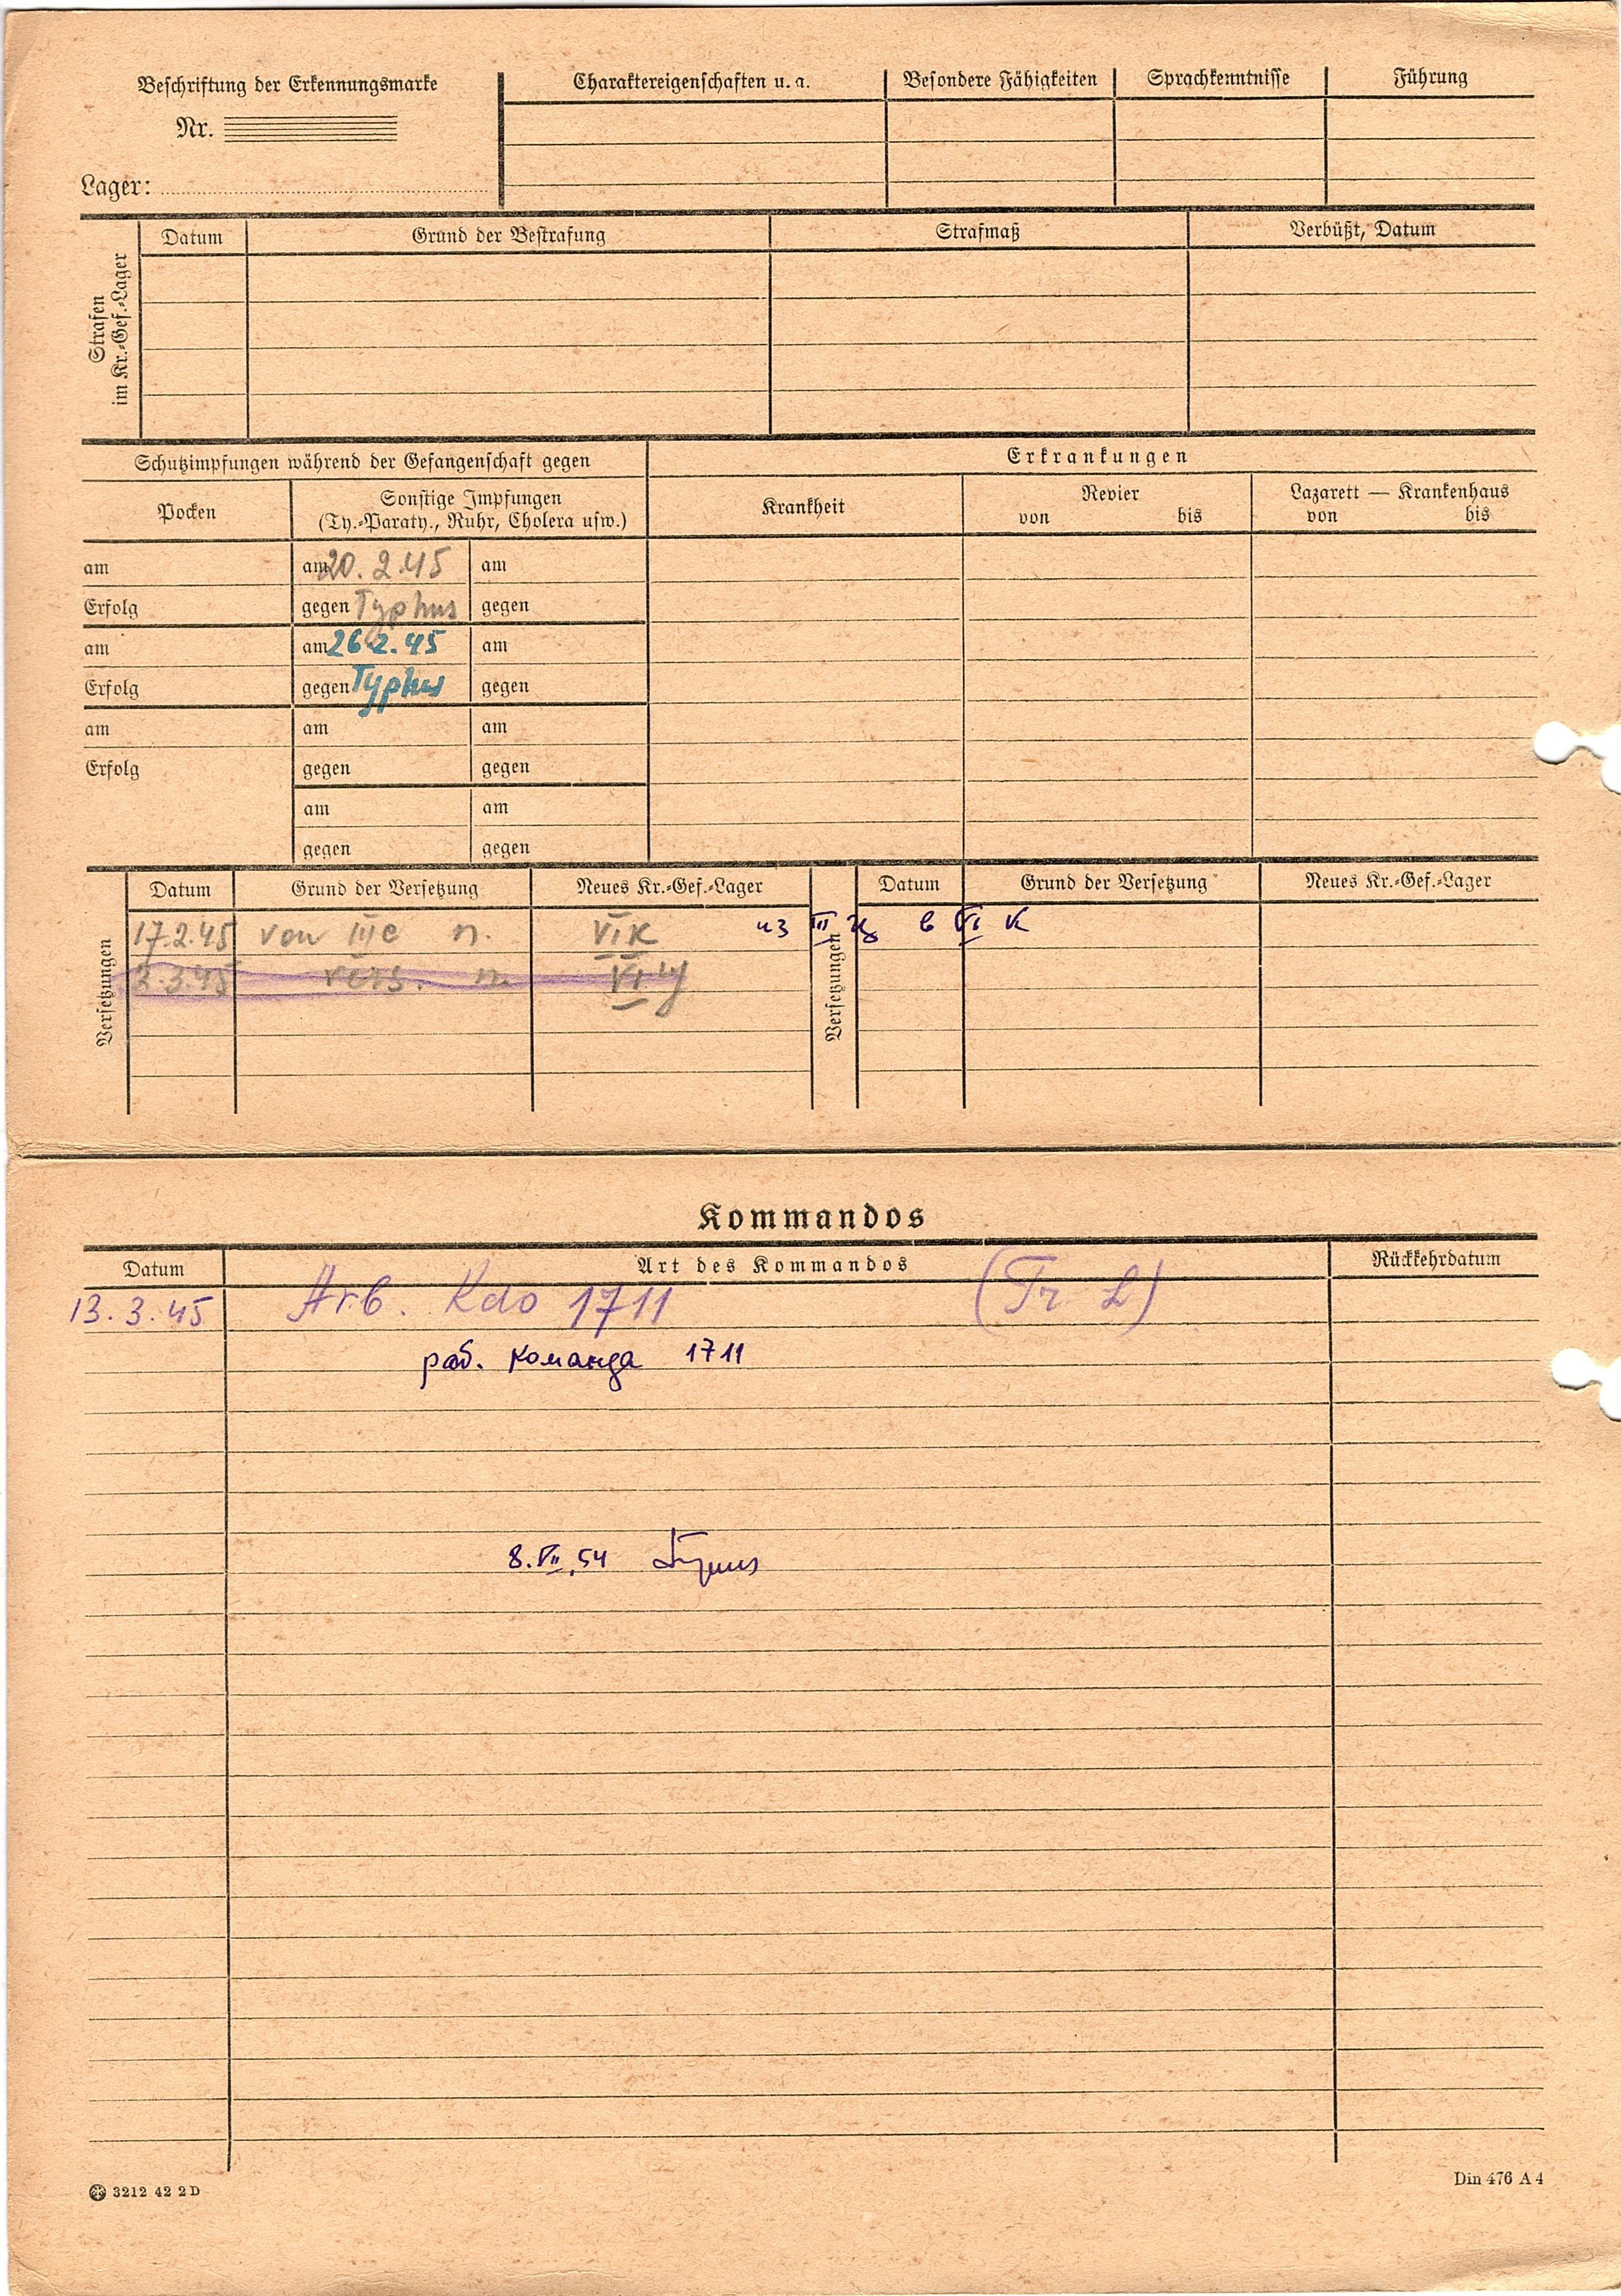 Beschriftung der Erkennungsmarke
Nr.
Lager:
Charaktereigenschaften u. a.
Besondere Fähigkeiten
Sprachkenntnisse
Führung
Strafen
im Kr.-Gef.-Lager
Datum
Grund der Bestrafung
Strafmaß
Verbüßt, Datum
Schutzimpfungen während der Gefangenschaft gegen
Erkrankungen
Pocken
Sonstige Impfungen
(Ty.-Paraty., Ruhr, Cholera usw.)
Krankheit
Revier
von bis
Lazarett — Krankenhaus
von bis
am am 20.2.45 am
Erfolg gegen Typhus gegen
am am 26.2.45 am
Erfolg gegen Typhus gegen
am am am
Erfolg gegen gegen
am am
gegen gegen
Versetzungen
Datum Grund der Versetzung Neues Kr.-Gef.-Lager
Versetzungen
Datum Grund der Versetzung Neues Kr.-Gef.-Lager
17.2.45 von III C n. VI K из III Ц в VI К
3.3.45 vers. n. VI
Kommandos
Datum Art des Kommandos Rückkehrdatum
13.3.45 Arb. Kdo 1711 (Tr. L)
раб. команда 1711
8.VII.54
3212 42 2 D
Din 476 A 4